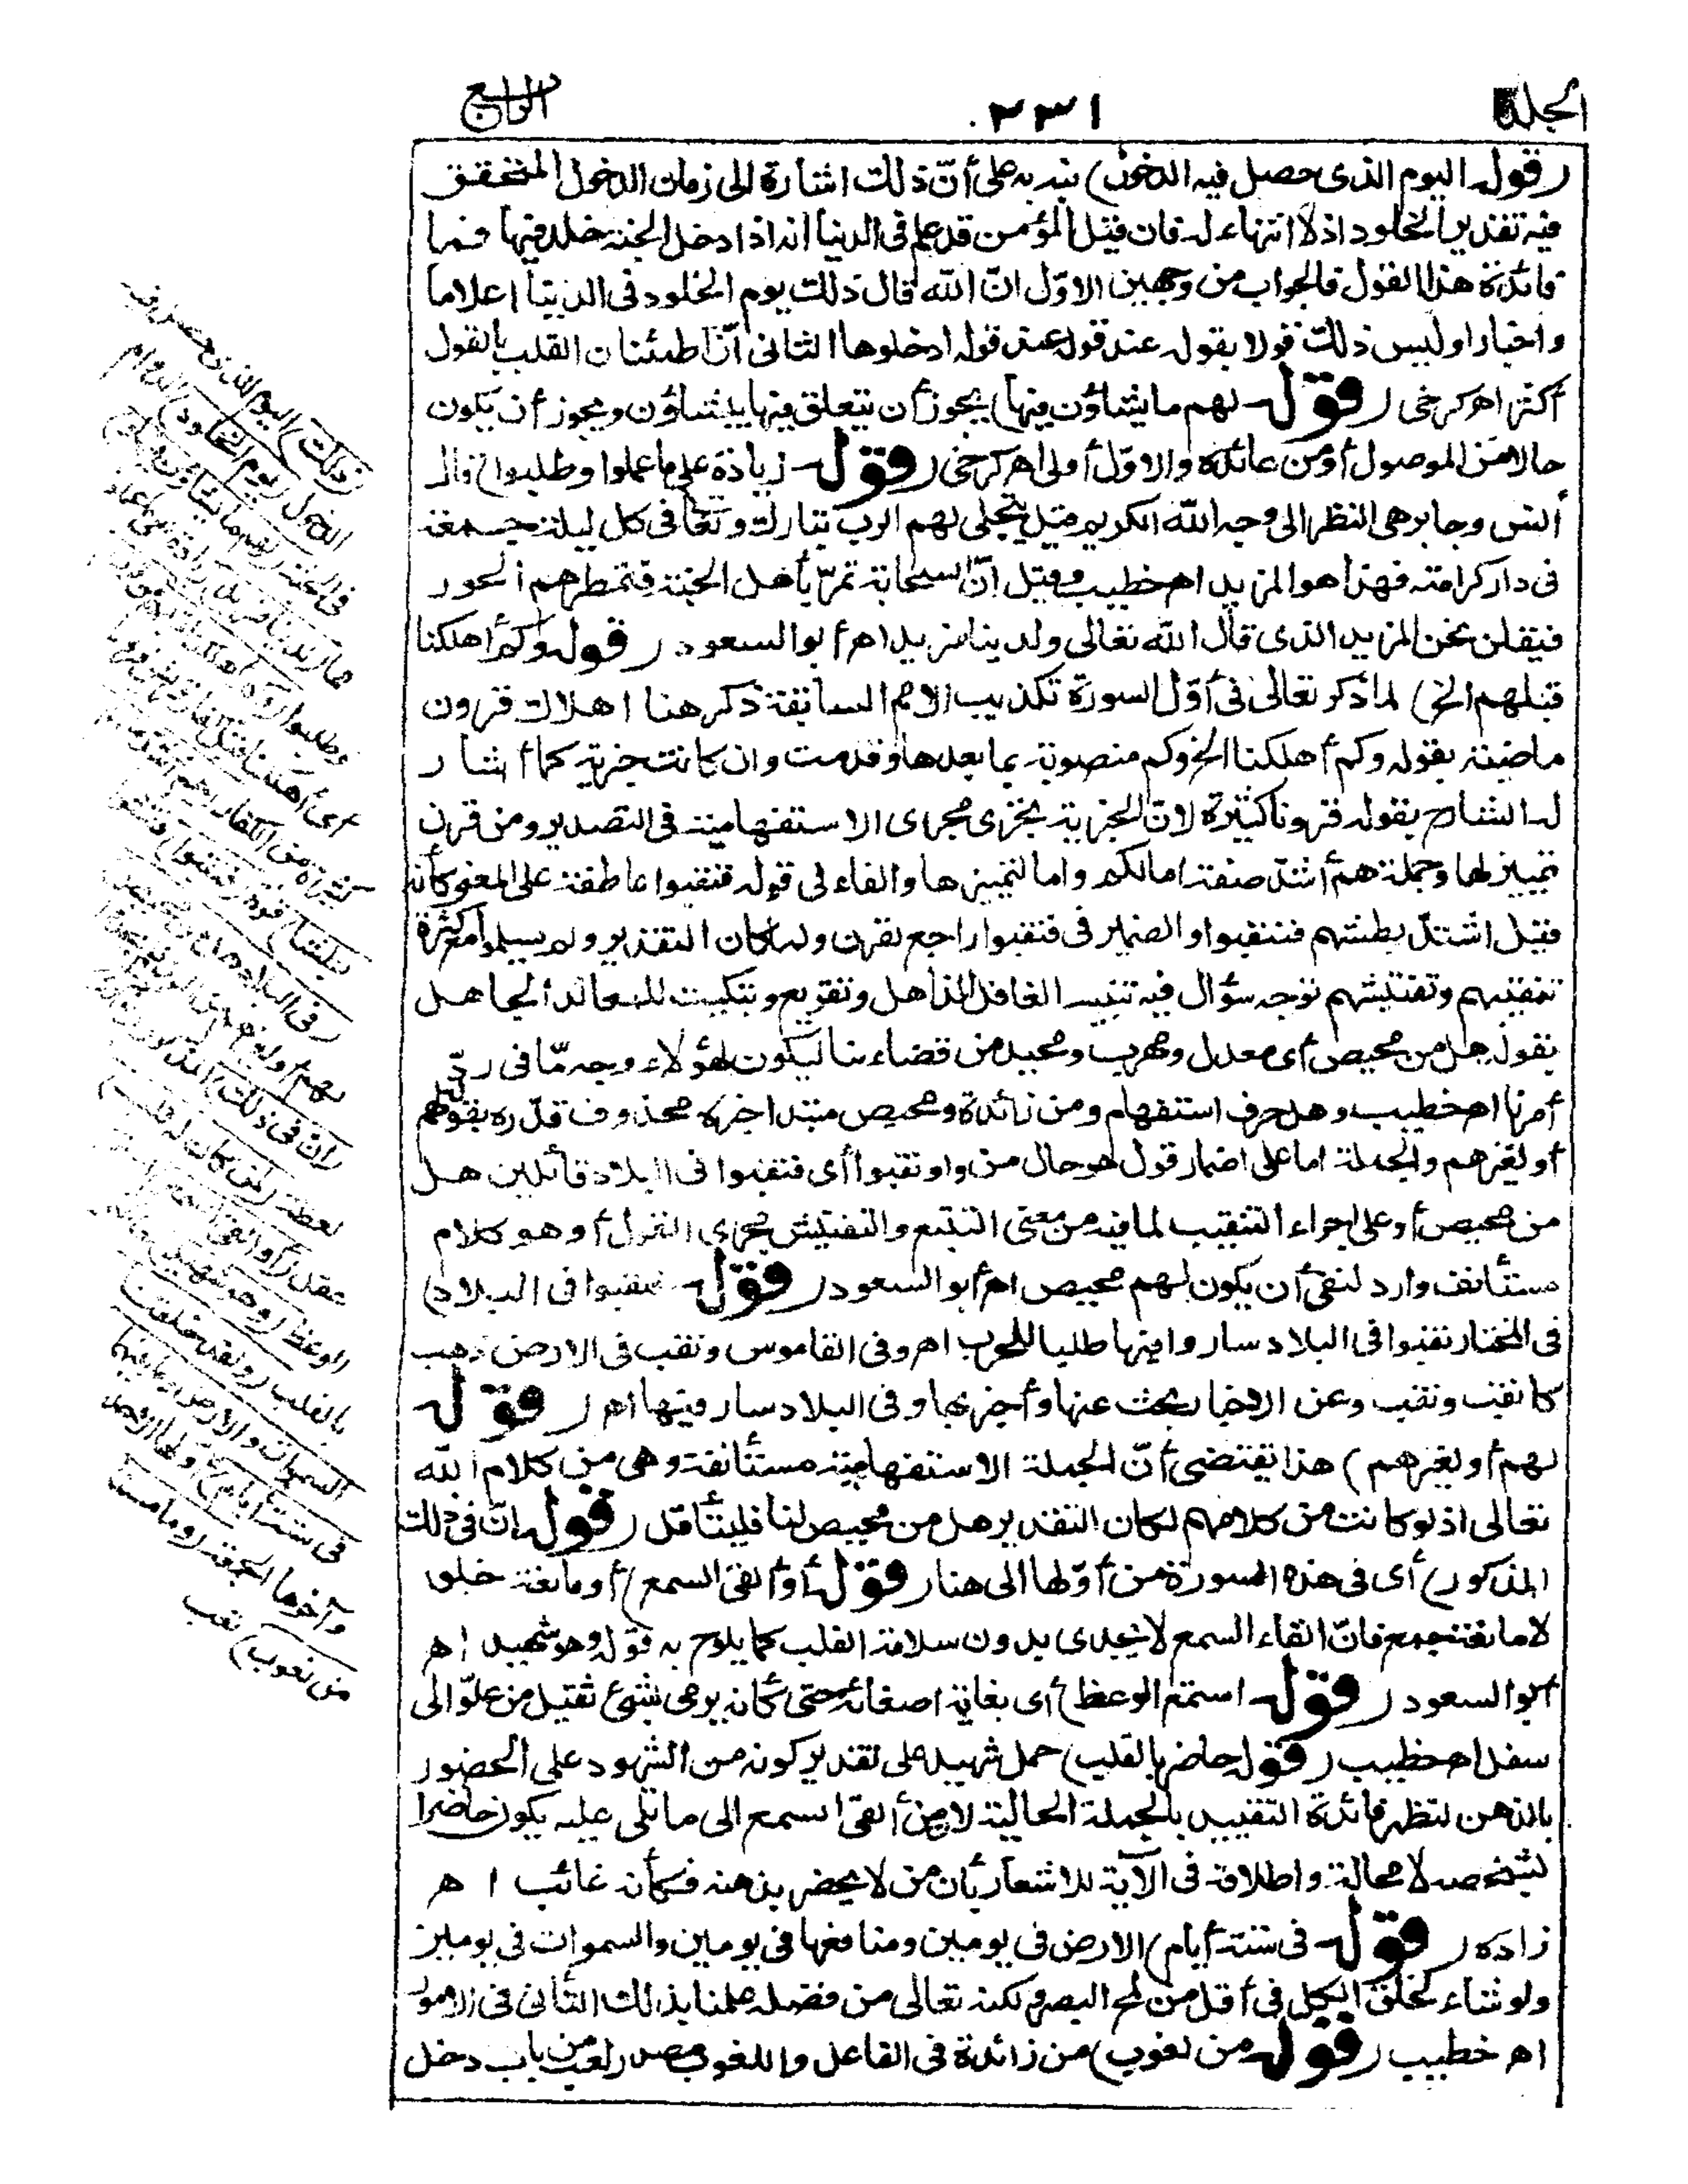 الجلد
٢٣١
الرابع
(قوله اليوم الذى حصل فيه الدخول) نبه به على أنّ ذلك اشارة الى زمان الدخول المتحقق
فيه تقدير الخلود اذ لا انتهاء له فان قيل المؤمن قد علم فى الدنيا انه اذا دخل الجنة خلد فيها فما
فائدة هذا القول فالجواب من وجهين الاوّل انّ الله قال ذلك يوم الخلود فى الدنيا اعلاما
واخبارا وليس ذلك قولا بقوله عند قوله ادخلوها الثانى أنّ اطمئنان القلب بالقول
أكثر اهـ كرخى (قوله لهم ما يشاؤن فيها) يجوز أن يتعلق فيها بيشاؤن ويجوز أن يكون
حالا من الموصول أو من عائده والاوّل أولى اهـ كرخى (قوله زيادة على ما عملوا وطلبوا) قال
أنس وجابر هى النظر الى وجه الله الكريم قيل يتجلى لهم الرب تبارك وتعالى فى كل ليلة جمعة
فى دار كرامته فهذا هو المزيد اهـ خطيب وقيل انّ السحابة تمرّ بأهل الجنة فتمطرهم الحور
فيقلن نحن المزيد الذى قال الله تعالى ولدينا مزيد اهـ أبو السعود (قوله وكم أهلكنا
قبلهم الخ) لما ذكر تعالى فى أوّل السورة تكذيب الامم السابقة ذكر هنا اهلاك قرون
ماضية بقوله وكم أهلكنا الخ وكم منصوبة بما بعدها وقدمت وان كانت خبرية كما أشار
له الشارح بقوله قرونا كثيرة لانّ الخبرية تجرى مجرى الاستفهامية فى التصدير ومن قرن
تمييز لها وجملة هم أشدّ صفة اما لكم واما لتمييزها والفاء فى قوله فنقبوا عاطفة على المعنى كأنه
قيل اشتدّ بطشهم فنقبوا والضمير فى فنقبوا راجع لقرن ولما كان التقدير ولم يسلموا مع كثرة
تنقيبهم وتفتيشهم توجه سؤال فيه تنبيه الغافل الذاهل وتقريع وتبكيت للمعاند الجاهل
بقوله هل من محيص أى معدل ومهرب ومحيد من قضاءنا ليكون لهؤلاء وجه مّا فى ردّ
أمرنا اهـ خطيب وهل حرف استفهام ومن زائدة ومحيص مبتدا خبره محذوف قدّره بقوله لهم
أو لغيرهم والجملة اما على اضمار قول هو حال من واو نقبوا أى فنقبوا فى البلاد قائلين هل
من محيص أو على اجراء التنقيب لما فيه من معنى التتبع والتفتيش مجرى القول أو هو كلام
مستأنف وارد لنفى أن يكون لهم محيص اهـ أبو السعود (قوله فنقبوا فى البلاد)
فى المختار نقبوا فى البلاد ساروا فيها طلبا للهرب اهـ وفى القاموس ونقب فى الارض ذهب
كأنقب ونقب وعن الاخبار بحث عنها وأخبر بها وفى البلاد سار فيها اهـ (قوله
لهم أو لغيرهم) هذا يقتضى أنّ الجملة الاستفهامية مستأنفة وهى من كلام الله
تعالى اذ لو كانت من كلامهم لكان التقدير هل من محيص لنا فليتأمّل (قوله انّ فى ذلك
المذكور) أى فى هذه السورة من أوّلها الى هنا (قوله أو ألقى السمع) أو مانعة خلو
لا مانعة جمع فانّ القاء السمع لا يجدى بدون سلامة القلب كما يلوح به قوله وهو شهيد اهـ
أبو السعود (قوله استمع الوعظ) أى بغاية اصغائه حتى كأنه يرمى بشئ ثقيل من علوّ الى
سفل اهـ خطيب (قوله حاضر بالقلب) حمل شهيد على تقدير كونه من الشهود على الحضور
بالذهن لتظهر فائدة التقييد بالجملة الحالية لان من ألقى السمع الى ما تلى عليه يكون حاضرا
بشخصه لا محالة واطلاقه فى الآية للاشعار بأن من لا يحضر بذهنه فكأنه غائب اهـ
زاده (قوله فى ستة أيام) الارض فى يومين ومنافعها فى يومين والسموات فى يومين
ولو شاء لخلق الكل فى أقل من لمح البصر ولكنه تعالى من فضله علمنا بذلك التأنى فى الامور
اهـ خطيب (قوله من لغوب) من زائدة فى الفاعل واللغوب مصدر لغب من باب دخل
(ذلك) اليوم الذى حصل فيه
الدخول (يوم الخلود) الدوام
فى الجنة (لهم ما يشاؤن فيها
ولدينا مزيد) زيادة على ما عملوا
وطلبوا (وكم أهلكنا
كثيرة من الكفار (هم أشدّ منهم
بطشا) قوّة (فنقبوا) فتشوا
(فى البلاد هل من محيص)
لهم أو لغيرهم
(ان فى ذلك) المذكور
لعظة (لمن كان له قلب)
عقل (أو ألقى السمع)
الوعظ (وهو شهيد) حاضر
بالقلب (ولقد خلقنا
السموات والارض وما بينهما
فى ستة أيام) أولها الاحد
وآخرها الجمعة (وما مسنا
من لغوب) تعب